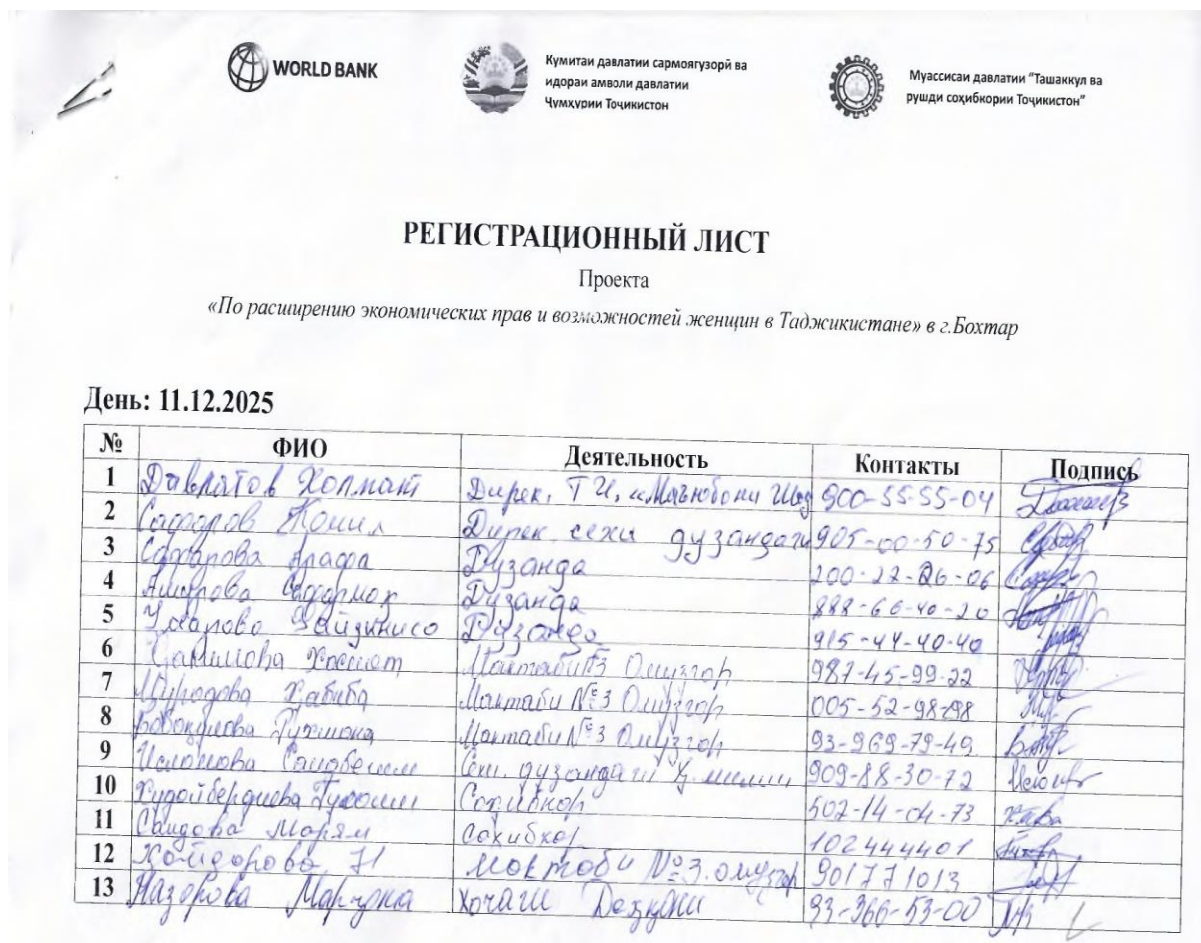 WORLD BANK
Кумитаи давлатии сармоягузорӣ ва
идораи амволи давлатии
Ҷумҳурии Тоҷикистон
Муассисаи давлатии "Ташаккул ва
рушди соҳибкории Тоҷикистон"
РЕГИСТРАЦИОННЫЙ ЛИСТ
Проекта
«По расширению экономических прав и возможностей женщин в Таджикистане» в г.Бохтар
День: 11.12.2025
№ ФИО Деятельность Контакты Подпись
1 Давлатов Холмат Дирек. 900-55-55-04
2 Сафаров Комил Дирек сехи дузандаги 905-00-50-75
3 Сафарова Арафа Дузанда 200-22-26-06
4 Амирова Сафармох Дузанда 888-66-40-20
5 Умарова Зайзинисо Дузанда 915-44-40-40
6 Мактаби №3 Омузгор 987-45-99-22
7 Муродова Хабиба Мактаби №3 Омузгор 005-52-98-98
8 Мактаби №3 Омузгор 93-969-79-49
9 дузандаги 909-88-30-72
10 Худойбердиева Соҳибкор 502-14-04-73
11 Саидова Марям Сохибкор 102444401
12 мактаби №3. омузгор 901771013
13 Назарова Марҷона Хоҷагии Деҳқонӣ 93-366-53-00